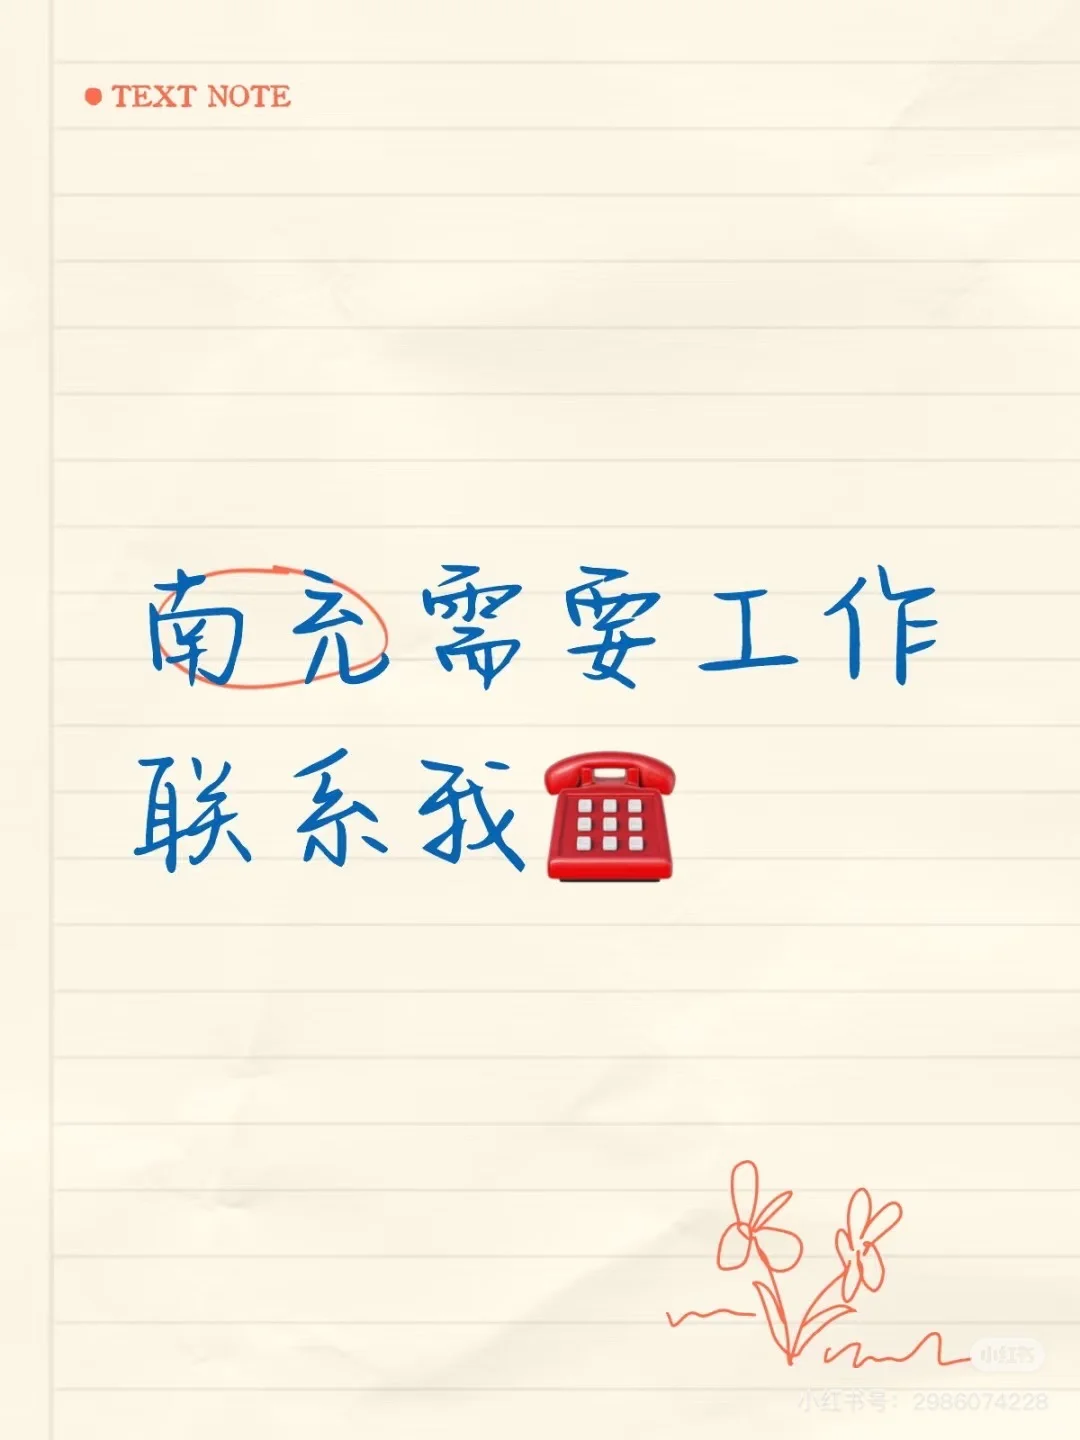 TEXT NOTE
南充需要工作
联系我
小红书
小红书号：2986074228